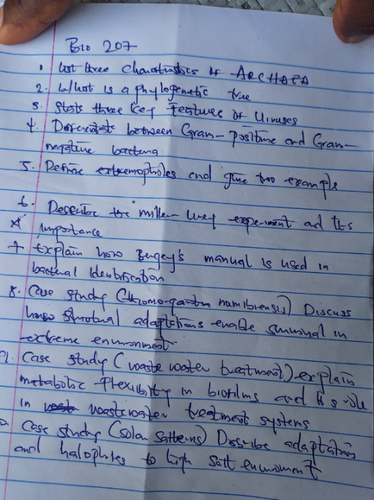 Bio 207
1. List three characteristics of ARCHAEA
2. What is a phylogenetic tree
3. State three key features of Viruses
4. Differentiate between Gram-positive and Gram-
negative bacteria
5. Define extremophiles and give two example
6. Describe the miller urey experiment and its
importance
7 Explain how Bergey's manual is used in
bacterial identification
8. Case study (namibiensis) Discuss
how structural adaptations enable survival in
extreme environment
9. Case study (waste water treatment) explain
metabolic flexibility in biofilms and its role
in wastewater treatment systems
Case study (Solar Salterns) Describe adaptation
and halophiles to high salt environment